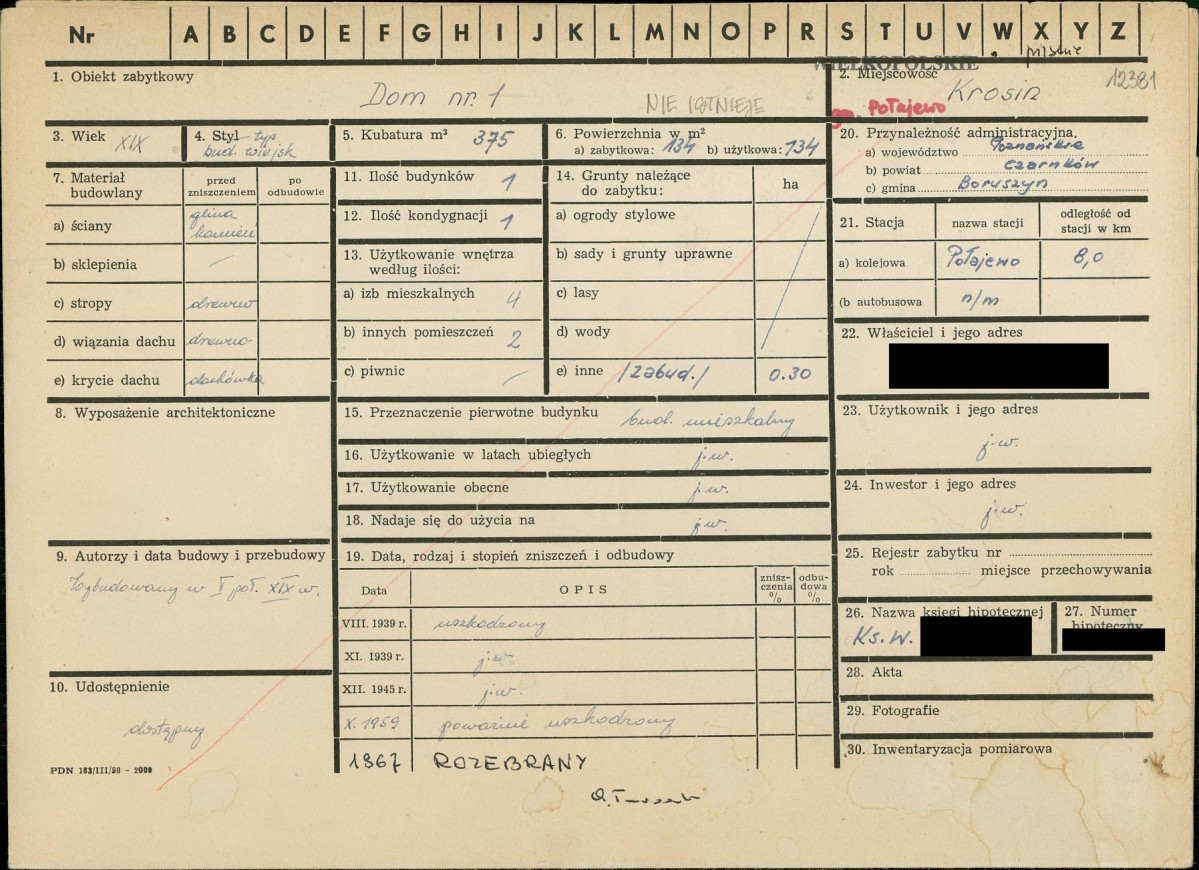 Nr A B C D E F G H I J K L M N O P R S T U V W X Y Z
WIELKOPOLSKIE
12381
1. Obiekt zabytkowy
Dom nr. 1
NIE ISTNIEJE
2. Miejscowość
Krosin
gm. Połajewo
3. Wiek
XIX
4. Styl typ
bud. wiejsk
5. Kubatura m³ 375
6. Powierzchnia w m²
a) zabytkowa: 134 b) użytkowa: 134
7. Materiał budowlany
przed zniszczeniem
po odbudowie
a) ściany
glina
kamień
b) sklepienia —
c) stropy drewno
d) wiązania dachu drewno
e) krycie dachu dachówka
8. Wyposażenie architektoniczne
9. Autorzy i data budowy i przebudowy
Wybudowany w I poł. XIX w.
10. Udostępnienie
dostępny
PDN 183/III/58 - 2000
11. Ilość budynków 1
12. Ilość kondygnacji 1
13. Użytkowanie wnętrza
według ilości:
a) izb mieszkalnych 4
b) innych pomieszczeń 2
c) piwnic —
14. Grunty należące
do zabytku:
ha
a) ogrody stylowe
b) sady i grunty uprawne
c) lasy
d) wody
e) inne /zabud./ 0.30
15. Przeznaczenie pierwotne budynku bud. mieszkalny
16. Użytkowanie w latach ubiegłych j.w.
17. Użytkowanie obecne j.w.
18. Nadaje się do użycia na j.w.
19. Data, rodzaj i stopień zniszczeń i odbudowy
Data
OPIS
znisz-
czenia
%
odbu-
dowa
%
VIII. 1939 r. uszkodzony
XI. 1939 r. j.w.
XII. 1945 r. j.w.
X. 1959 poważnie uszkodzony
1967 ROZEBRANY
20. Przynależność administracyjna,
a) województwo Poznańskie
b) powiat Czarnków
c) gmina Boruszyn
21. Stacja
nazwa stacji
odległość od
stacji w km
a) kolejowa Połajewo 8,0
(b autobusowa n/m
22. Właściciel i jego adres
23. Użytkownik i jego adres
j.w.
24. Inwestor i jego adres
j.w.
25. Rejestr zabytku nr
rok miejsce przechowywania
26. Nazwa księgi hipotecznej
Ks.W.
27. Numer
hipoteczny
28. Akta
29. Fotografie
30. Inwentaryzacja pomiarowa